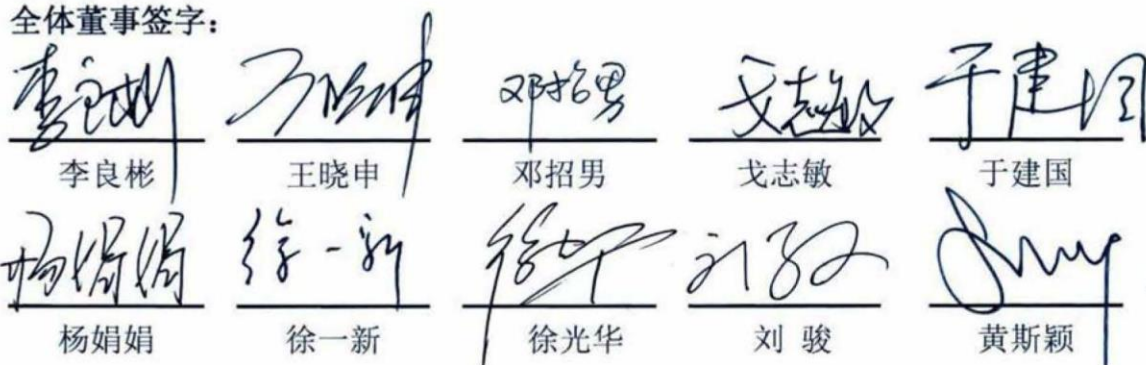 全体董事签字：
李良彬 王晓申 邓招男 戈志敏 于建国
李良彬 王晓申 邓招男 戈志敏 于建国
杨娟娟 徐一新 徐光华 刘骏
杨娟娟 徐一新 徐光华 刘 骏 黄斯颖